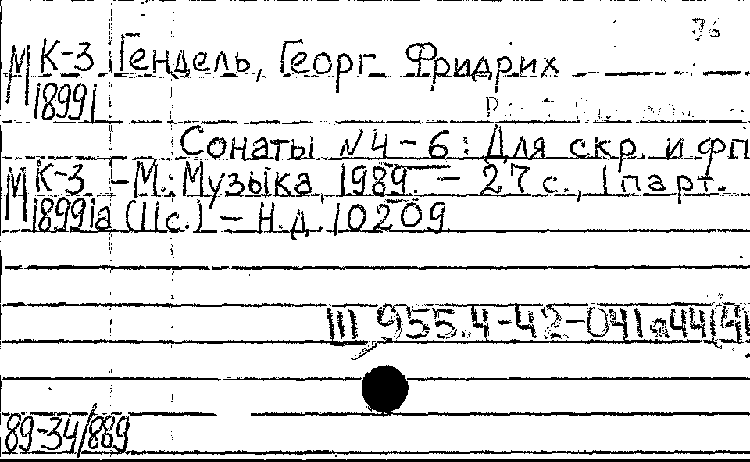 76
М К-3 Гендель, Георг Фридрих
18991
Сонаты № 4-6: Для скр. и фп
М К-3 – М.: Музыка, 1989. – 27 с., 1 парт.
18991а (11 с.) – Н.д. 10209
Ш 955.4-42-041я44(4
89-34/889